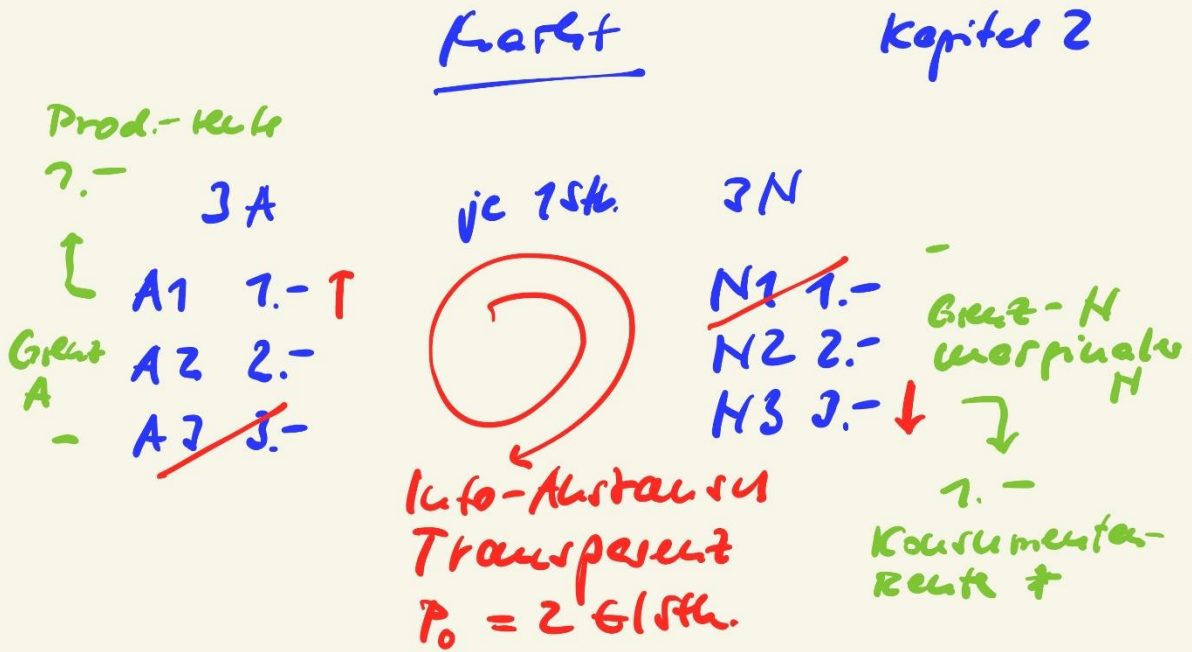 Markt
Kapitel 2
Prod.-rente
1.-
3A
je 1 Stk.
3N
A1 1.-
A2 2.-
A3 3.-
Grenz
A
-
N1 1.-
N2 2.-
N3 3.-
-
Grenz-N
marginaler
N
1.-
Konsumenten-
Rente *
Info-Austausch
Transparenz
P₀ = 2 €/Stk.